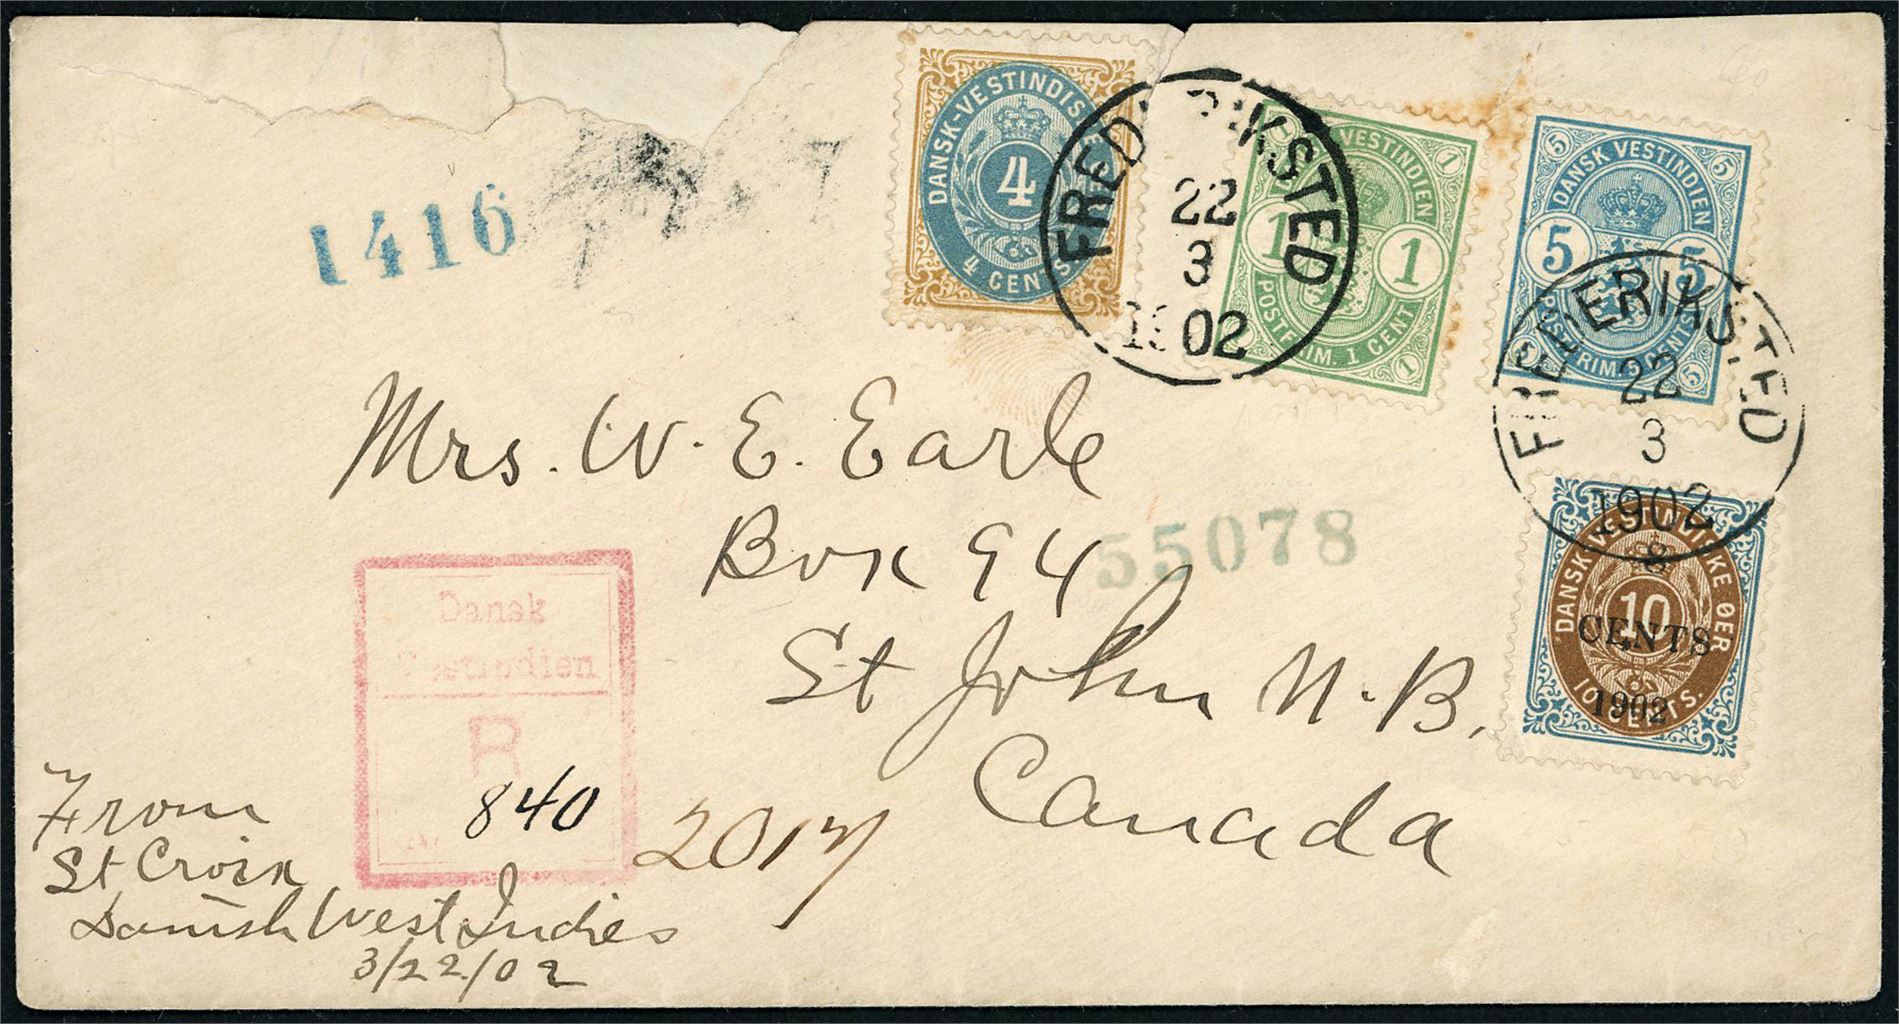 1416
DANSK-VESTINDISKE
4
4 CENTS
FREDERIKSTED
22
3
1902
VESTINDIEN
1 1
POSTFRIM. 1 CENT
5 5
DANSK VESTINDIEN
5 5
POSTFRIM. 5 CENTS
FREDERIKSTED
22
3
1902
Mrs. W. E. Earle
Box 94
55078
St John N.B.
Canada
8
DANSK VESTINDISKE ØER
10
CENTS
10 CENTS.
1902
Dansk
Vestindien
R
840
2017
From
St Croix
Danish West Indies
3/22/02